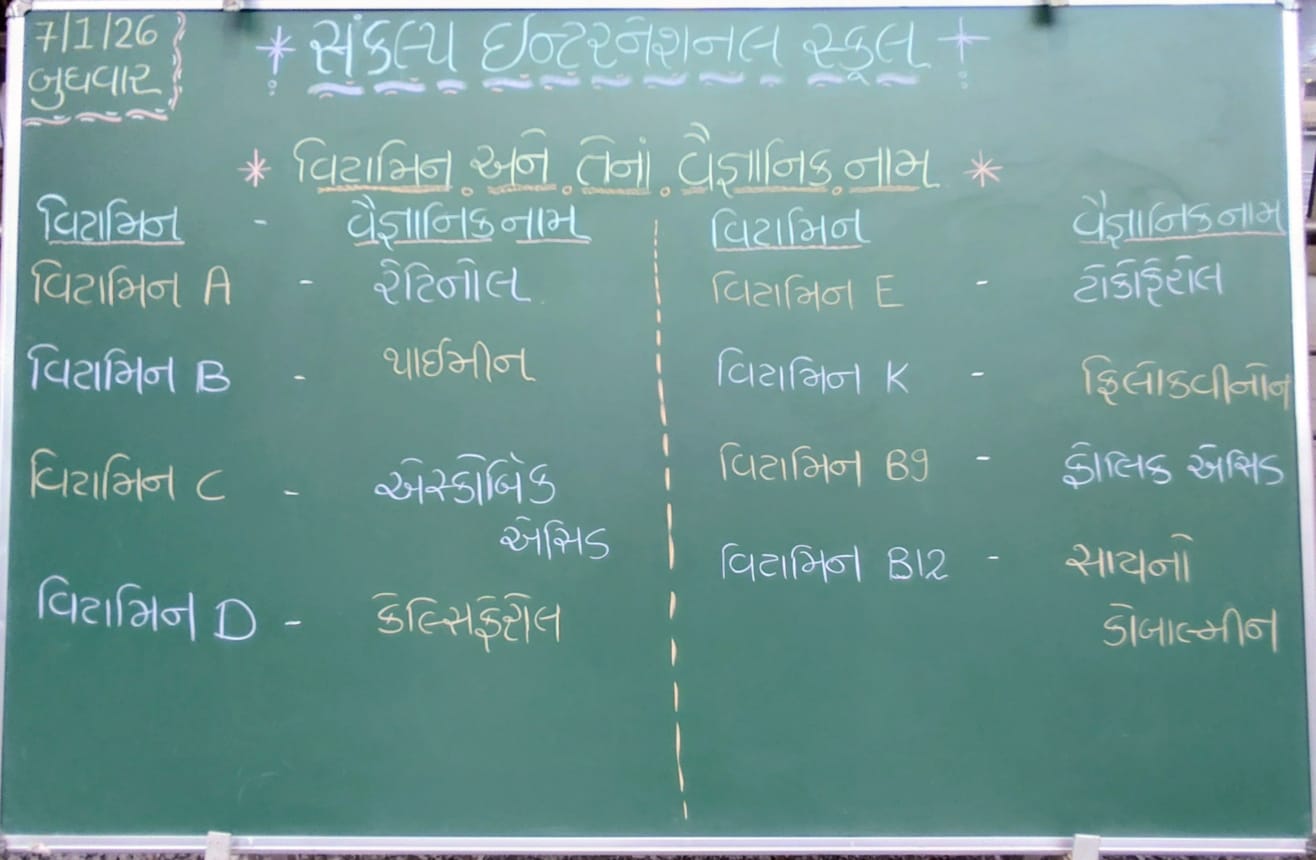 7/1/26
બુધવાર
* સંકલ્પ ઇન્ટરનેશનલ સ્કૂલ *
* વિટામિન અને તેનાં વૈજ્ઞાનિક નામ *
વિટામિન - વૈજ્ઞાનિક નામ
વિટામિન A - રેટિનોલ
વિટામિન B - થાઈમીન
વિટામિન C - એસ્કોર્બિક
એસિડ
વિટામિન D - કેલ્સિફેરોલ
વિટામિન વૈજ્ઞાનિક નામ
વિટામિન E - ટોકોફેરોલ
વિટામિન K - ફિલોકવીનોન
વિટામિન B9 - ફોલિક એસિડ
વિટામિન B12 - સાયનો
કોબાલ્મીન